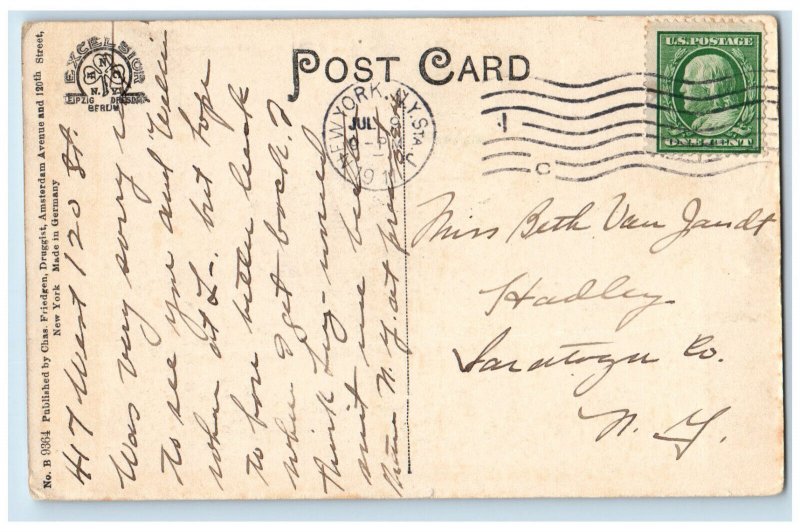 No. B 9364 Published by Chas. Friedgen, Druggist, Amsterdam Avenue and 120th Street,
New York Made in Germany
EXCELSIOR
N.Y.
LEIPZIG DRESDEN
BERLIN
POST CARD
417 West 120 St.
Was very sorry
to see you and
when at L-. but hope
to have better luck
when I get back. I
think
must me
N. Y. at present
NEW YORK, N.Y. STA. J
JUL
1911
1
C
U.S. POSTAGE
ONE CENT
Miss Beth Van Zandt
Hadley
Saratoga Co.
N. Y.